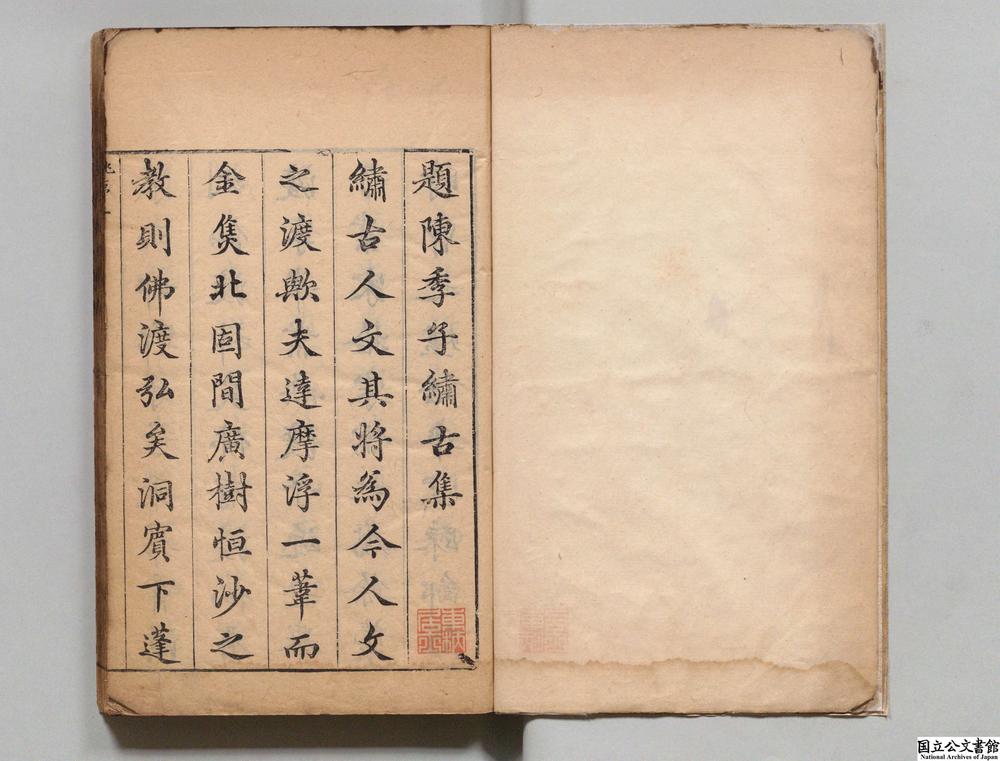 題陳季子繡古集
繡古人文其將為今人文
之渡歟夫達摩浮一葦而
金焦北固間廣樹恒沙之
教則佛渡弘矣洞賓下蓬
国立公文書館
National Archives of Japan